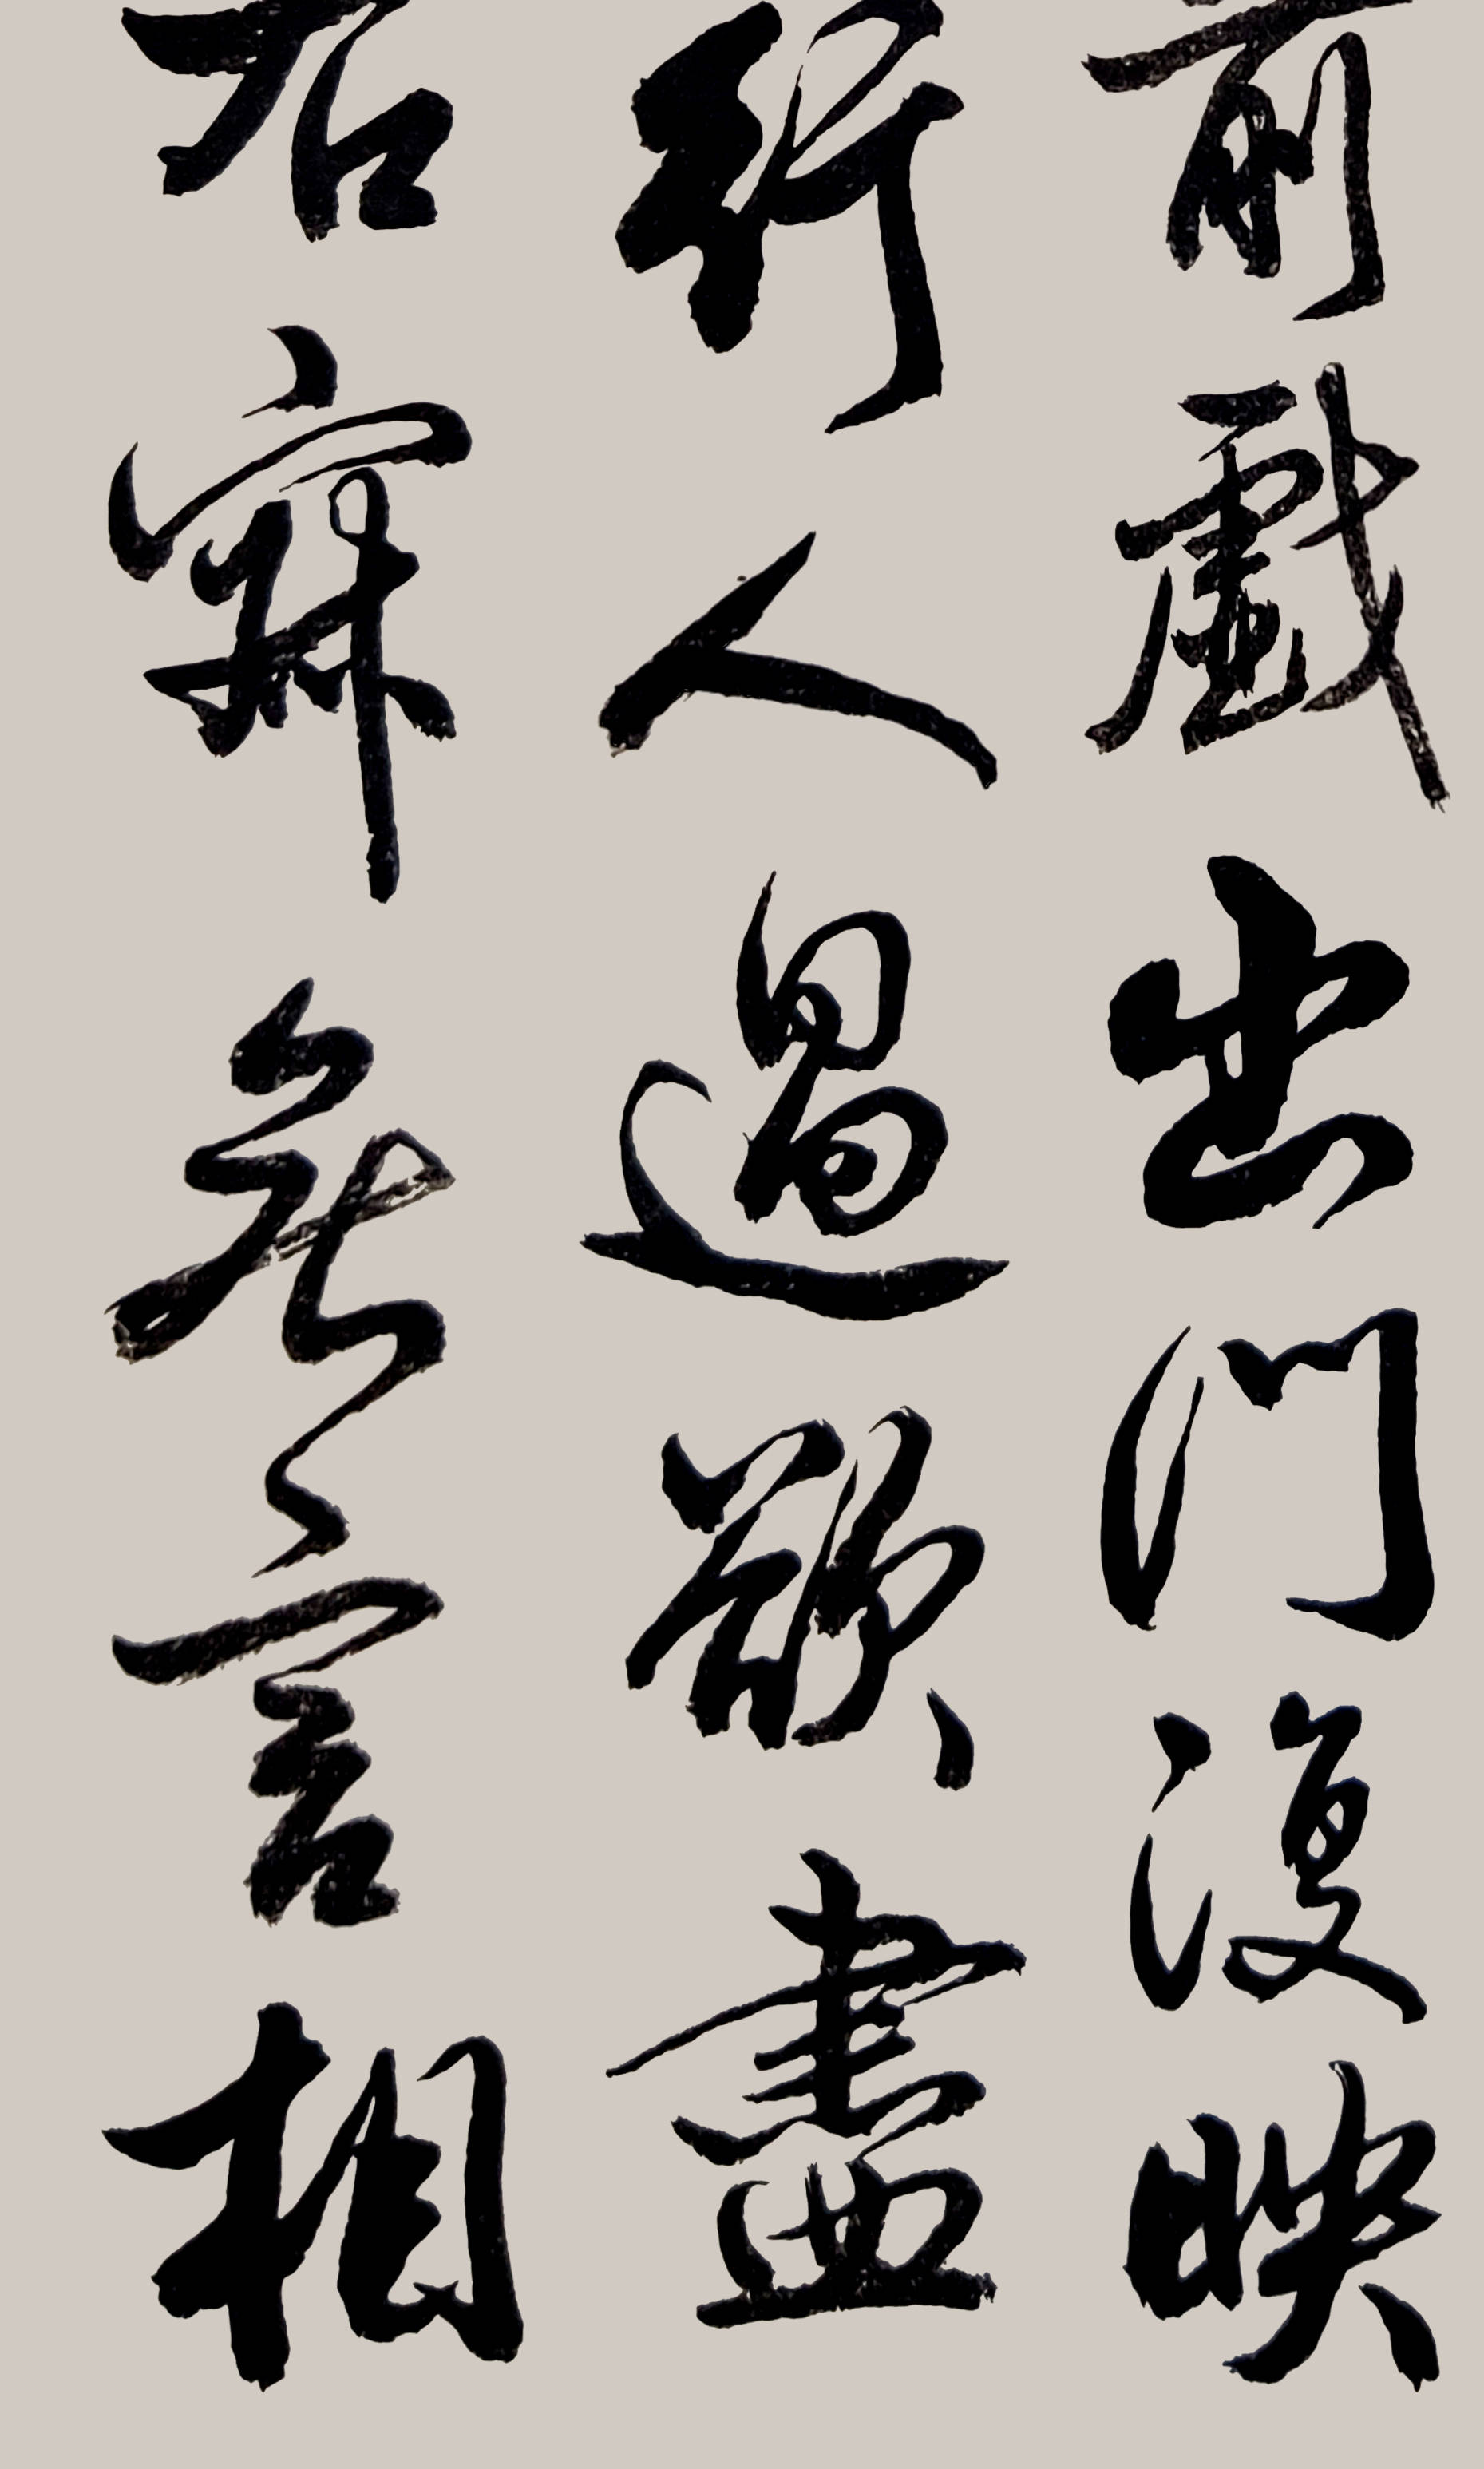 前戲出門復映
行人過欲盡
右寂無言相